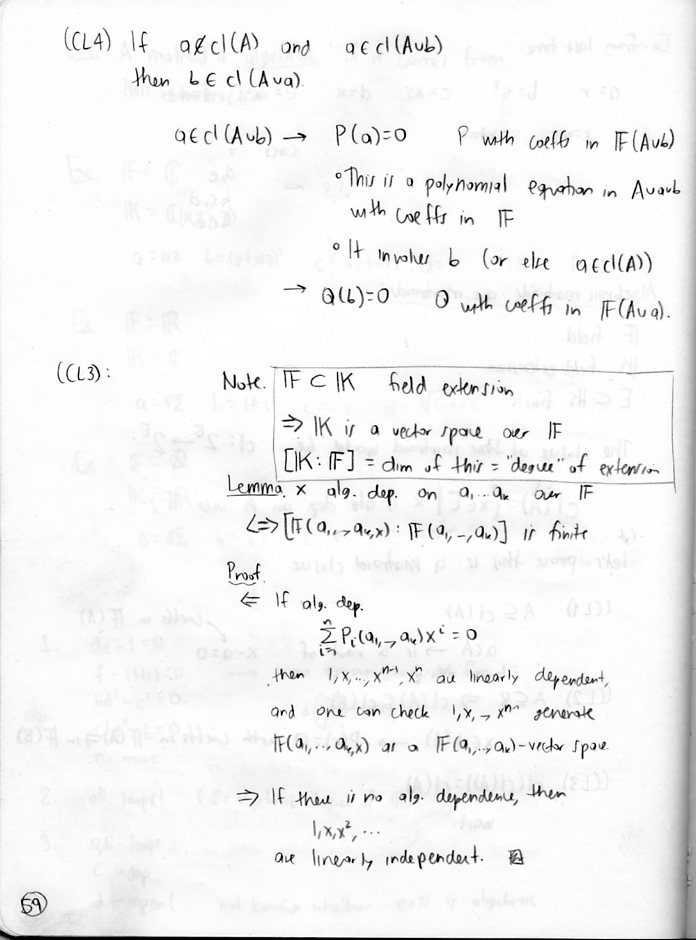 (CL4) If a∉cl(A) and a∈cl(A∪b)
then b∈cl(A∪a).
a∈cl(A∪b) → P(a)=0 P with coeffs in 𝔽(A∪b)
° This is a polynomial equation in A∪a∪b
with coeffs in 𝔽
° It involves b (or else a∈cl(A))
→ Q(b)=0 Q with coeffs in 𝔽(A∪a).
(CL3):
Note. 𝔽⊂𝕂 field extension
⇒ 𝕂 is a vector space over 𝔽
[𝕂:𝔽] = dim of this = "degree" of extension
Lemma. x alg. dep. on a,...aₖ over 𝔽
⇔ [𝔽(a₁,..,aₖ,x) : 𝔽(a₁,..,aₖ)] is finite
Proof.
⇐ If alg. dep.
∑ⁿᵢ₌₁ Pᵢ(a₁,..,aₖ)xⁱ = 0
then 1,x,..,xⁿ⁻¹,xⁿ are linearly dependent,
and one can check 1,x,..,xⁿ⁻¹ generate
𝔽(a₁,..,aₖ,x) as a 𝔽(a₁,..,aₖ)-vector space.
⇒ If there is no alg. dependence, then
1,x,x²,...
are linearly independent.
59